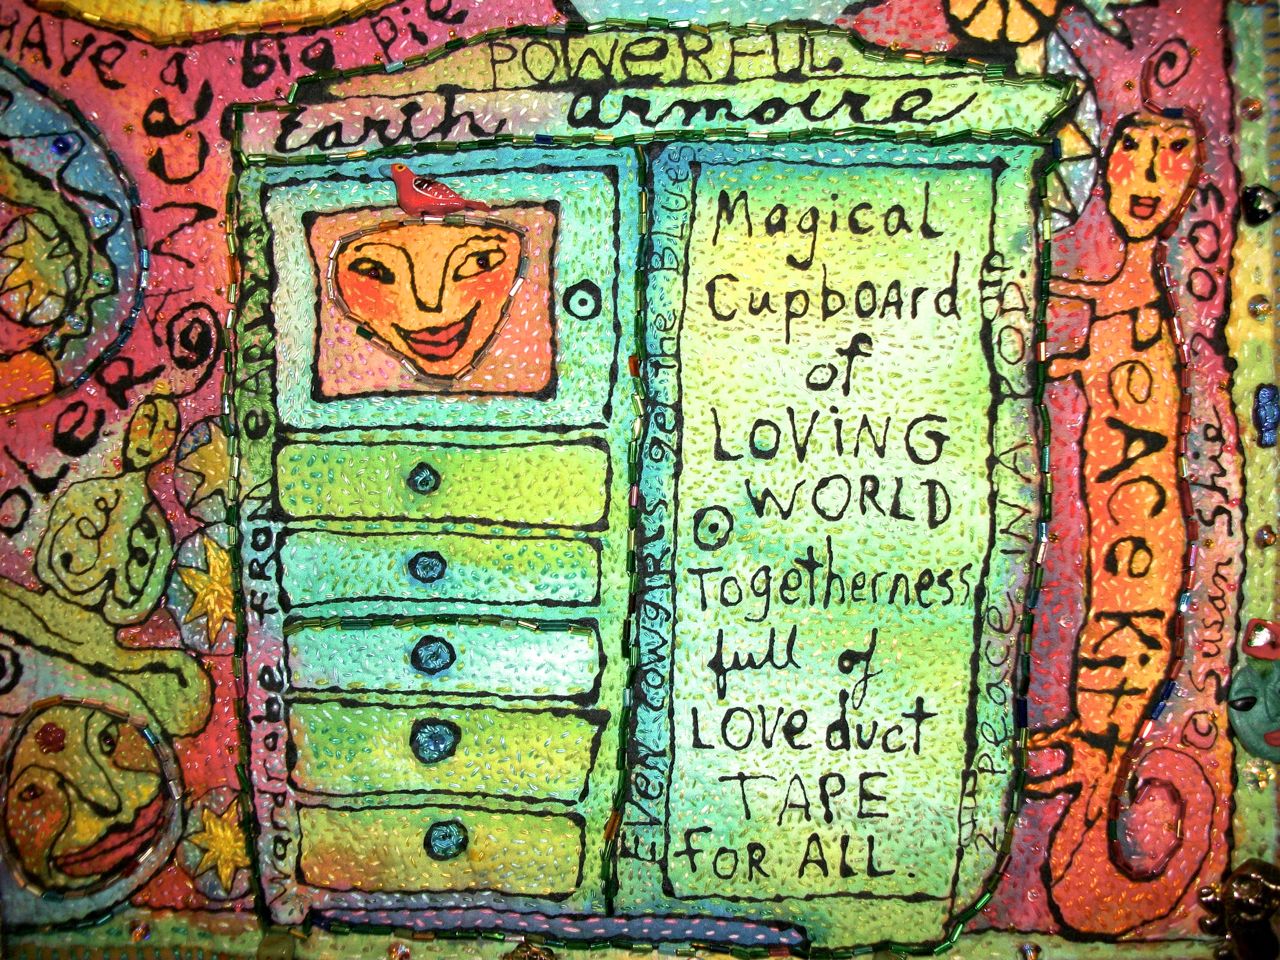 HAVE a big pie
POWERFUL
Earth armoire
Magical
CupBOARd
of
LOViNG
WORLD
Togetherness
full of
LOVe duct
TAPE
FOR ALL.
EVEN COWGIRLS get the BLUe
IN A POD
PeACeKitt
© Susan Shie 2003